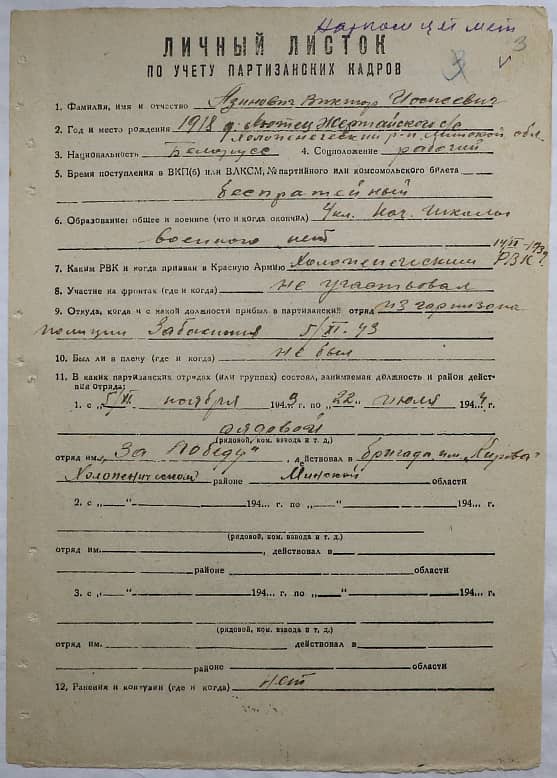 3
3
ЛИЧНЫЙ ЛИСТОК
ПО УЧЕТУ ПАРТИЗАНСКИХ КАДРОВ
1. Фамилия, имя и отчество Язинович Виктор Иосифович
2. Год и место рождения 1918 д. Лютец
Холопеничский р-н Минской обл.
3. Национальность Белорусс 4. Соцположение рабочий
5. Время поступления в ВКП(б) или ВЛКСМ, № партийного или комсомольского билета
беспартейный
6. Образование: общее и военное (что и когда окончил) 4 кл. Нач. Школы
военного нет
7. Каким РВК и когда призван в Красную Армию Холопеническим РВК
8. Участие на фронтах (где и когда) не участвовал
9. Откуда, когда и с какой должности прибыл в партизанский отряд из гарнизона
полиции 5/XI-43
10. Был ли в плену (где и когда) не был
11. В каких партизанских отрядах (или группах) состоял, занимаемая должность и район действия отряда:
1. с „5/XI ноября 1943 г. по „22" июля 1944 г.
рядовой
(рядовой, ком. взвода и т. д.)
отряд им. „За Победу", действовал в бригада им. „Кирова"
Холопеническом районе Минской области
2. с „ —"  194... г. по „—" 194... г.
(рядовой, ком. взвода и т. д.)
отряд им. , действовал в
районе области
3. с „ —" 194... г. по „—" 194... г.
(рядовой, ком. взвода и т. д.)
отряд им. действовал в
районе области
12. Ранения и контузии (где и когда) нет